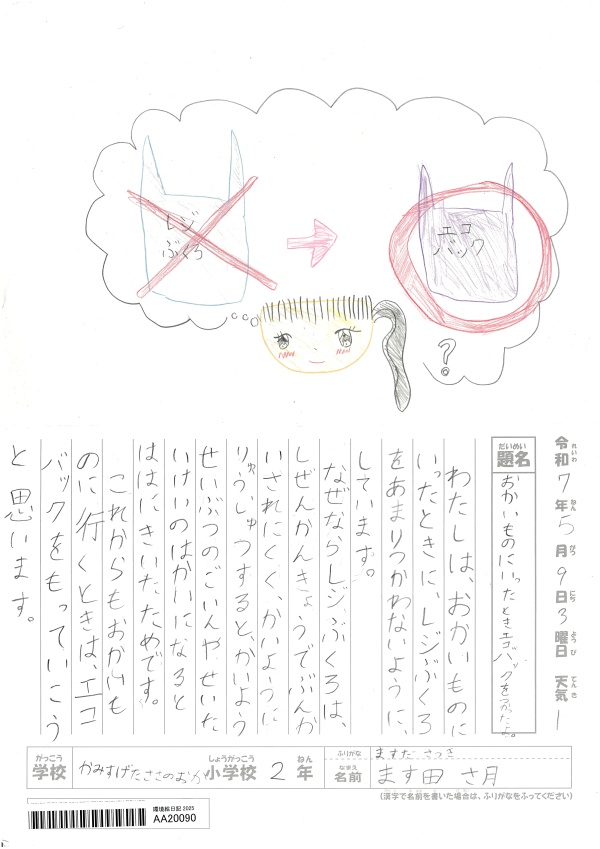 レジ
ぶくろ
エコ
バック
?
令和7年5月9日3曜日 天気1
れいわ ねん がつ にち ようび てんき
だいめい
題名
おかいものにいったときエコバックをつかたよ。
わたしは、おかいものに
いったときに、レジぶくろ
をあまりつかわないように、
しています。
なぜならレジぶくろは、
しぜんかんきょうでぶんか
いされにくく、かいように
りゅうしゅつするとかいよう
せいぶつのごいんやせいた
いけいのはかいになると
ははにきいたためです。
これからもおかいも
のに行くときは、エコ
バックをもっていこう
と思います。
がっこう
学校
かみすげたささのおか
しょうがっこう
小学校
2
ねん
年
ふりがな
ますだ さつき
なまえ
名前
ます田 さ月
(漢字で名前を書いた場合は、ふりがなをふってください)
環境絵日記 2025
AA20090